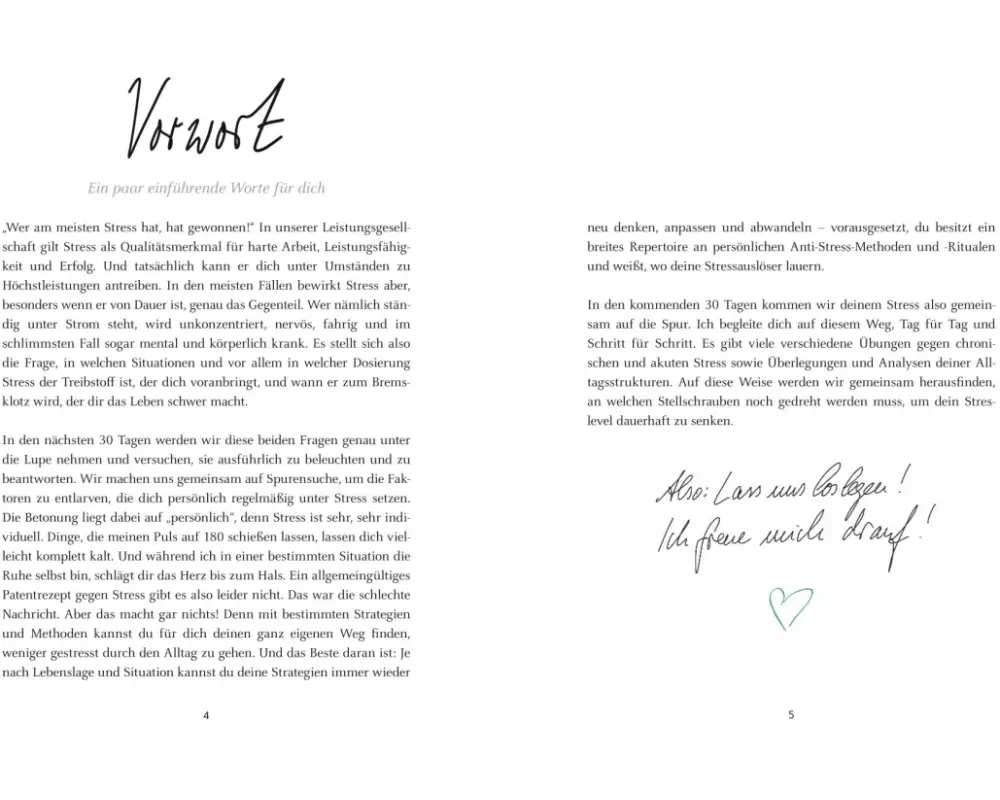 Vorwort
Ein paar einführende Worte für dich
„Wer am meisten Stress hat, hat gewonnen!“ In unserer Leistungsgesell-
schaft gilt Stress als Qualitätsmerkmal für harte Arbeit, Leistungsfähig-
keit und Erfolg. Und tatsächlich kann er dich unter Umständen zu
Höchstleistungen antreiben. In den meisten Fällen bewirkt Stress aber,
besonders wenn er von Dauer ist, genau das Gegenteil. Wer nämlich stän-
dig unter Strom steht, wird unkonzentriert, nervös, fahrig und im
schlimmsten Fall sogar mental und körperlich krank. Es stellt sich also
die Frage, in welchen Situationen und vor allem in welcher Dosierung
Stress der Treibstoff ist, der dich voranbringt, und wann er zum Brems-
klotz wird, der dir das Leben schwer macht.
In den nächsten 30 Tagen werden wir diese beiden Fragen genau unter
die Lupe nehmen und versuchen, sie ausführlich zu beleuchten und zu
beantworten. Wir machen uns gemeinsam auf Spurensuche, um die Fak-
toren zu entlarven, die dich persönlich regelmäßig unter Stress setzen.
Die Betonung liegt dabei auf „persönlich“, denn Stress ist sehr, sehr indi-
viduell. Dinge, die meinen Puls auf 180 schießen lassen, lassen dich viel-
leicht komplett kalt. Und während ich in einer bestimmten Situation die
Ruhe selbst bin, schlägt dir das Herz bis zum Hals. Ein allgemeingültiges
Patentrezept gegen Stress gibt es also leider nicht. Das war die schlechte
Nachricht. Aber das macht gar nichts! Denn mit bestimmten Strategien
und Methoden kannst du für dich deinen ganz eigenen Weg finden,
weniger gestresst durch den Alltag zu gehen. Und das Beste daran ist: Je
nach Lebenslage und Situation kannst du deine Strategien immer wieder
4
neu denken, anpassen und abwandeln – vorausgesetzt, du besitzt ein
breites Repertoire an persönlichen Anti-Stress-Methoden und -Ritualen
und weißt, wo deine Stressauslöser lauern.
In den kommenden 30 Tagen kommen wir deinem Stress also gemein-
sam auf die Spur. Ich begleite dich auf diesem Weg, Tag für Tag und
Schritt für Schritt. Es gibt viele verschiedene Übungen gegen chroni-
schen und akuten Stress sowie Überlegungen und Analysen deiner All-
tagsstrukturen. Auf diese Weise werden wir gemeinsam herausfinden,
an welchen Stellschrauben noch gedreht werden muss, um dein Stres-
level dauerhaft zu senken.
Also: Lass uns loslegen!
Ich freue mich drauf!
5